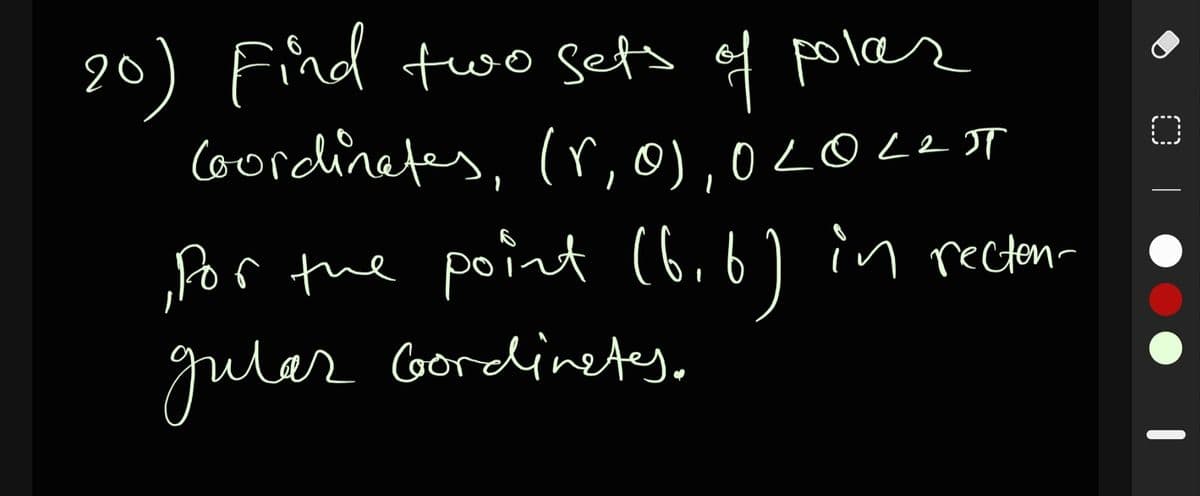 20) Find two sets of polar
Coordinates, (r, θ), 0 < θ < 2π
, for the point (6, 6) in rectan-
gular Coordinates.